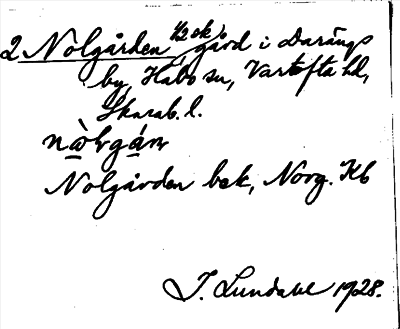 2 Nolgården 1/2 ek gård i Darängs
by, Habo sn, Vartofta hd,
Skarab. l.
Nolgården bek, Norg. Kb
I. Lundahl 1928.